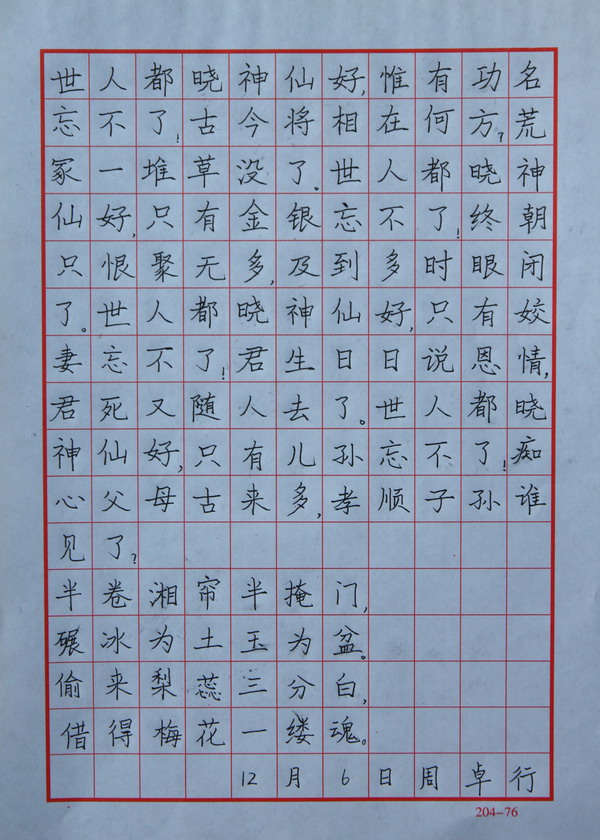 世人都晓神仙好,惟有功名
忘不了!古今将相在何方?荒
冢一堆草没了。世人都晓神
仙好,只有金银忘不了!终朝
只恨聚无多,及到多时眼闭
了。世人都晓神仙好,只有姣
妻忘不了!君生日日说恩情,
君死又随人去了。世人都晓
神仙好,只有儿孙忘不了!痴
心父母古来多,孝顺子孙谁
见了?
半卷湘帘半掩门,
碾冰为土玉为盆。
偷来梨蕊三分白,
借得梅花一缕魂。
12月6日周卓行
204-76